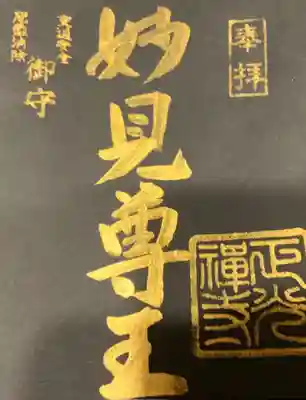 奉拝
妙見尊王
車道安全
厄難消除
御守
正光
禅寺